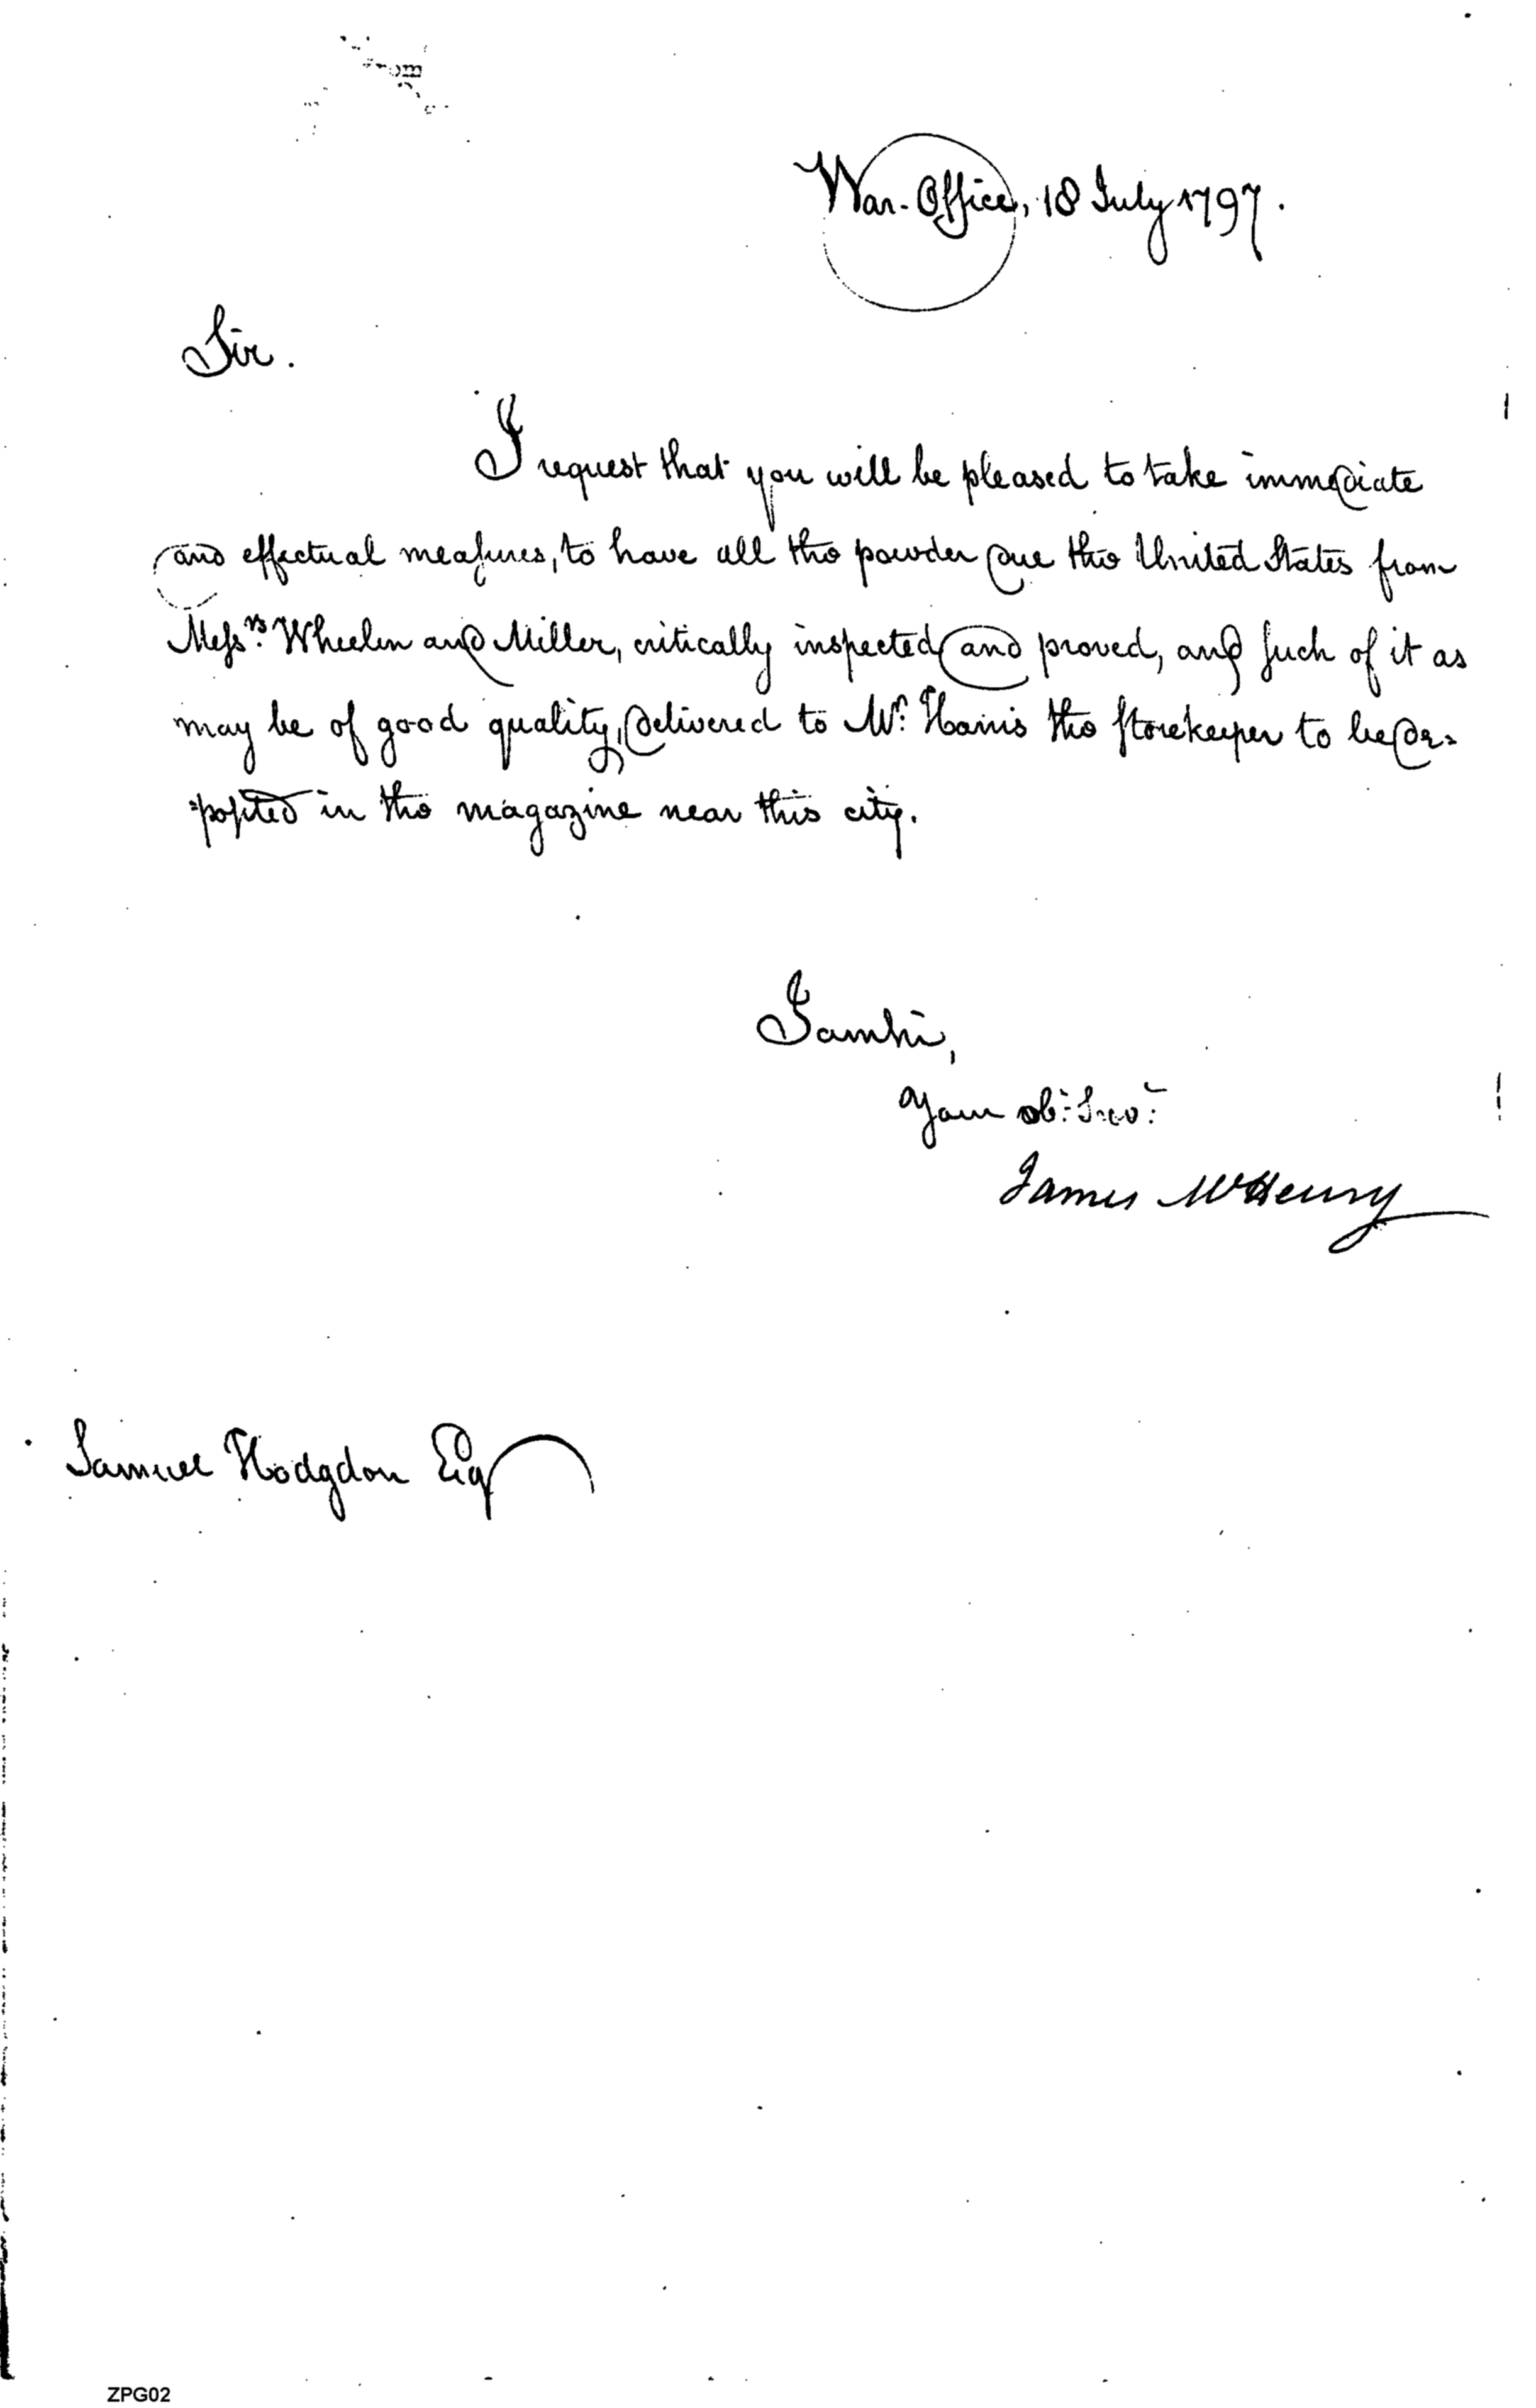 from
War-Office, 18 July 1797.
Sir.
I request that you will be pleased to take immediate
and effectual measures, to have all the powder due the United States from
Mess.rs Wheelen and Miller, critically inspected and proved, and such of it as
may be of good quality, delivered to Mr. Harris the storekeeper to be de=
=posited in the magazine near this city.
I am Sir,
Your obt. Servt.
James McHenry
Samuel Hodgdon Esq
ZPG02